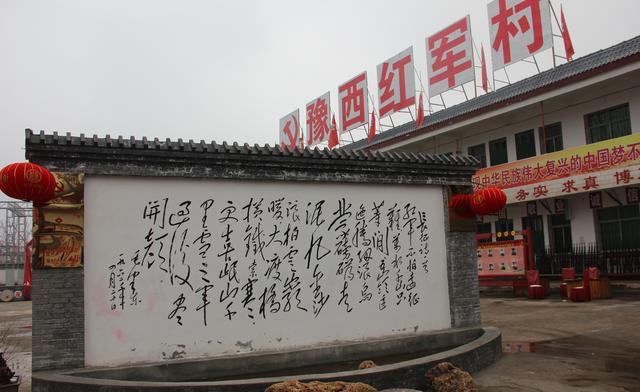 豫西红军村
汉中华民族伟大复兴的中国梦不
务实 求真 博
长征诗一首
红军不怕远征
难万水千山只
等闲五岭逶
迤腾细浪乌
蒙磅礴走
泥丸金沙
浪拍云崖
暖大渡桥
横铁索寒
更喜岷山千
里雪三军
过后尽
开颜
毛泽东
一九六二年
四月二十日